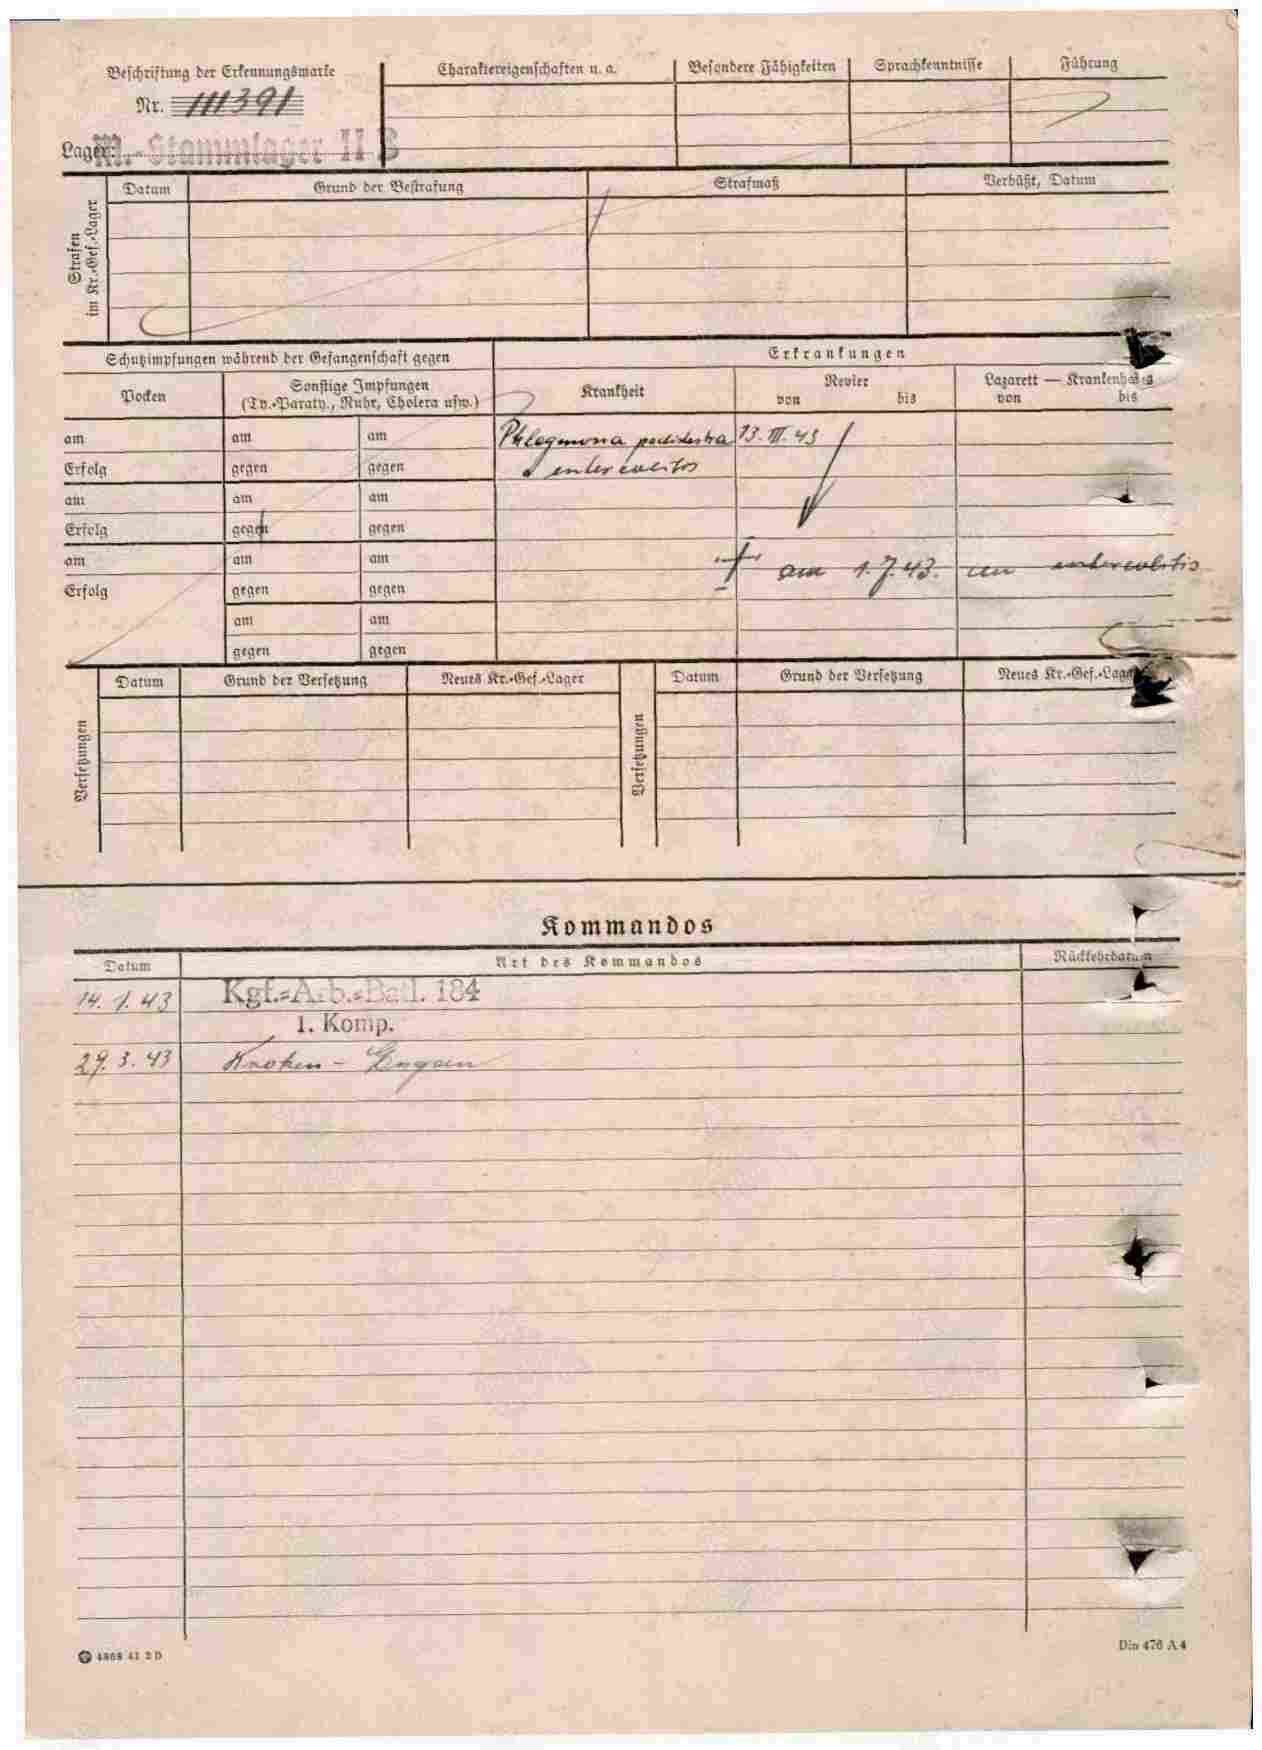 Beschriftung der Erkennungsmarke
Nr. 111391
Lager: M.-Stammlager II B
Charaktereigenschaften u. a.
Besondere Fähigkeiten
Sprachkenntnisse
Führung
Strafen
im Kr.-Gef.-Lager
Datum
Grund der Bestrafung
Strafmaß
Verbüßt, Datum
Schutzimpfungen während der Gefangenschaft gegen
Erkrankungen
Pocken
Sonstige Impfungen
(Ty.-Paraty., Ruhr, Cholera usw.)
Krankheit
Revier
von bis
Lazarett — Krankenhaus
von bis
am am am Phlegmona 13. III. 43
Erfolg gegen gegen enterocolitis
am am am
Erfolg gegen gegen
am am am am 1.7.43. an enterocolitis
Erfolg gegen gegen
am am
gegen gegen
Versetzungen
Datum
Grund der Versetzung
Neues Kr.-Gef.-Lager
Versetzungen
Datum
Grund der Versetzung
Neues Kr.-Gef.-Lager
Kommandos
Datum
Art des Kommandos
Rückkehrdatum
14. 1. 43 Kgf.=Arb.=Batl. 184
1. Komp.
29. 3. 43 Kroken -
4868 41 2 D
Din 476 A 4